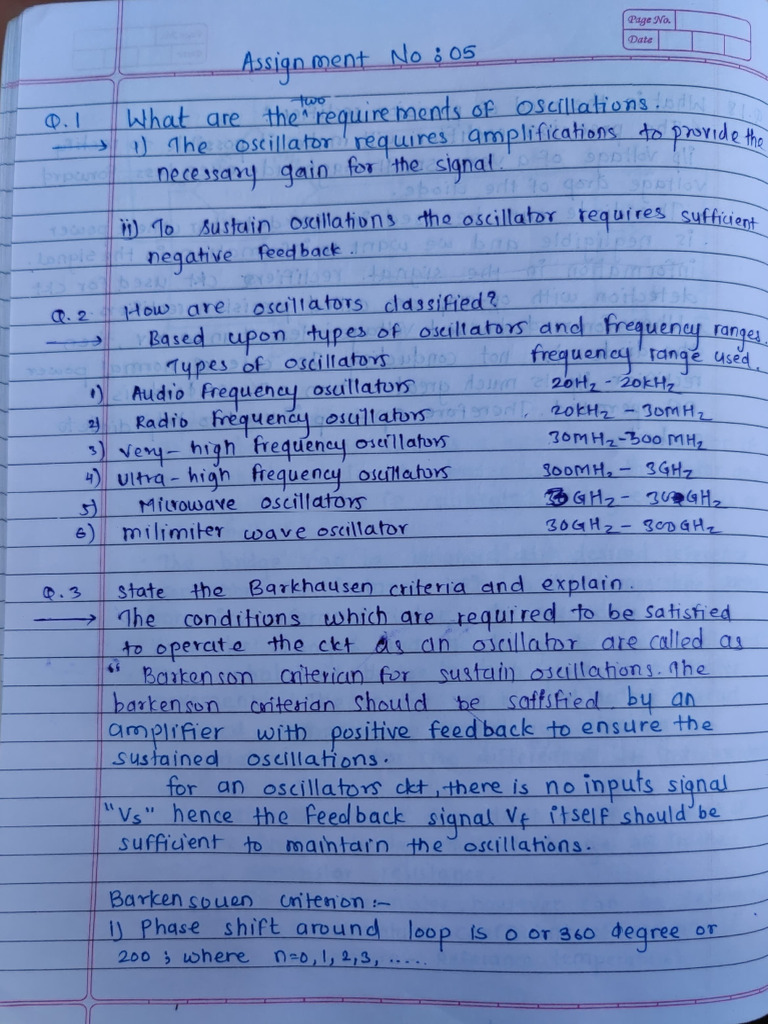 Page No.
Date
Assignment No : 05
Q.1 What are the two requirements of oscillations.
→ i) The oscillator requires amplifications to provide the
necessary gain for the signal.
ii) To sustain oscillations the oscillator requires sufficient
negative feedback.
Q.2 How are oscillators classified?
→ Based upon types of oscillators and frequency ranges.
Types of oscillators frequency range used.
1) Audio frequency oscillators 20Hz - 20kHz
2) Radio frequency oscillators 20kHz - 30MHz
3) very-high frequency oscillators 30MHz-300MHz
4) Ultra-high frequency oscillators 300MHz - 3GHz
5) Microwave oscillators 3GHz - 30GHz
6) milimiter wave oscillator 30GHz - 300GHz
Q.3 state the Barkhausen criteria and explain.
→ The conditions which are required to be satisfied
to operate the ckt as an oscillator are called as
" Barkenson criterian for sustain oscillations. The
barkenson criterian should be satisfied by an
amplifier with positive feedback to ensure the
sustained oscillations.
for an oscillators ckt, there is no inputs signal
"Vs" hence the feedback signal Vf itself should be
sufficient to maintain the oscillations.
Barkensouen criterion :-
1) Phase shift around loop is 0 or 360 degree or
200 ; where n=0,1,2,3, .....